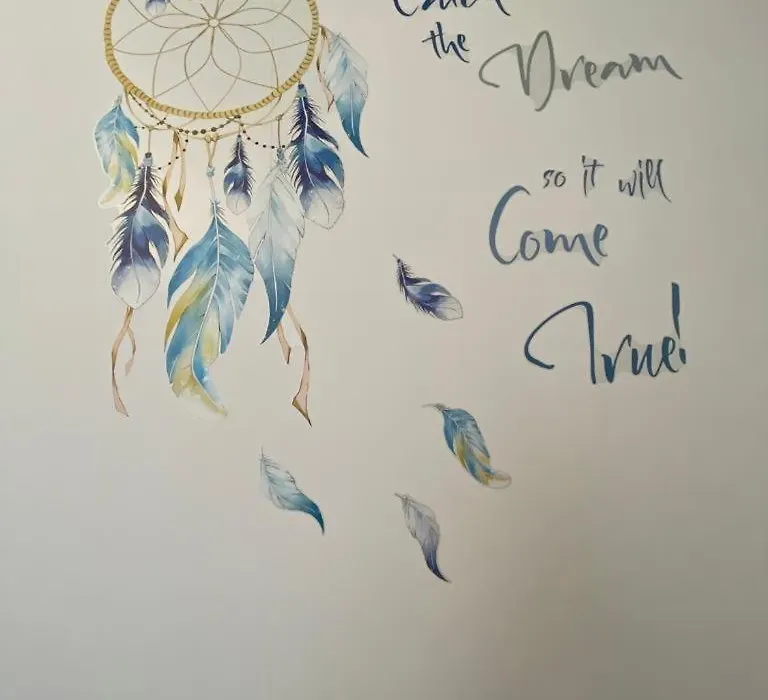 the
Dream
so it will
Come
True!